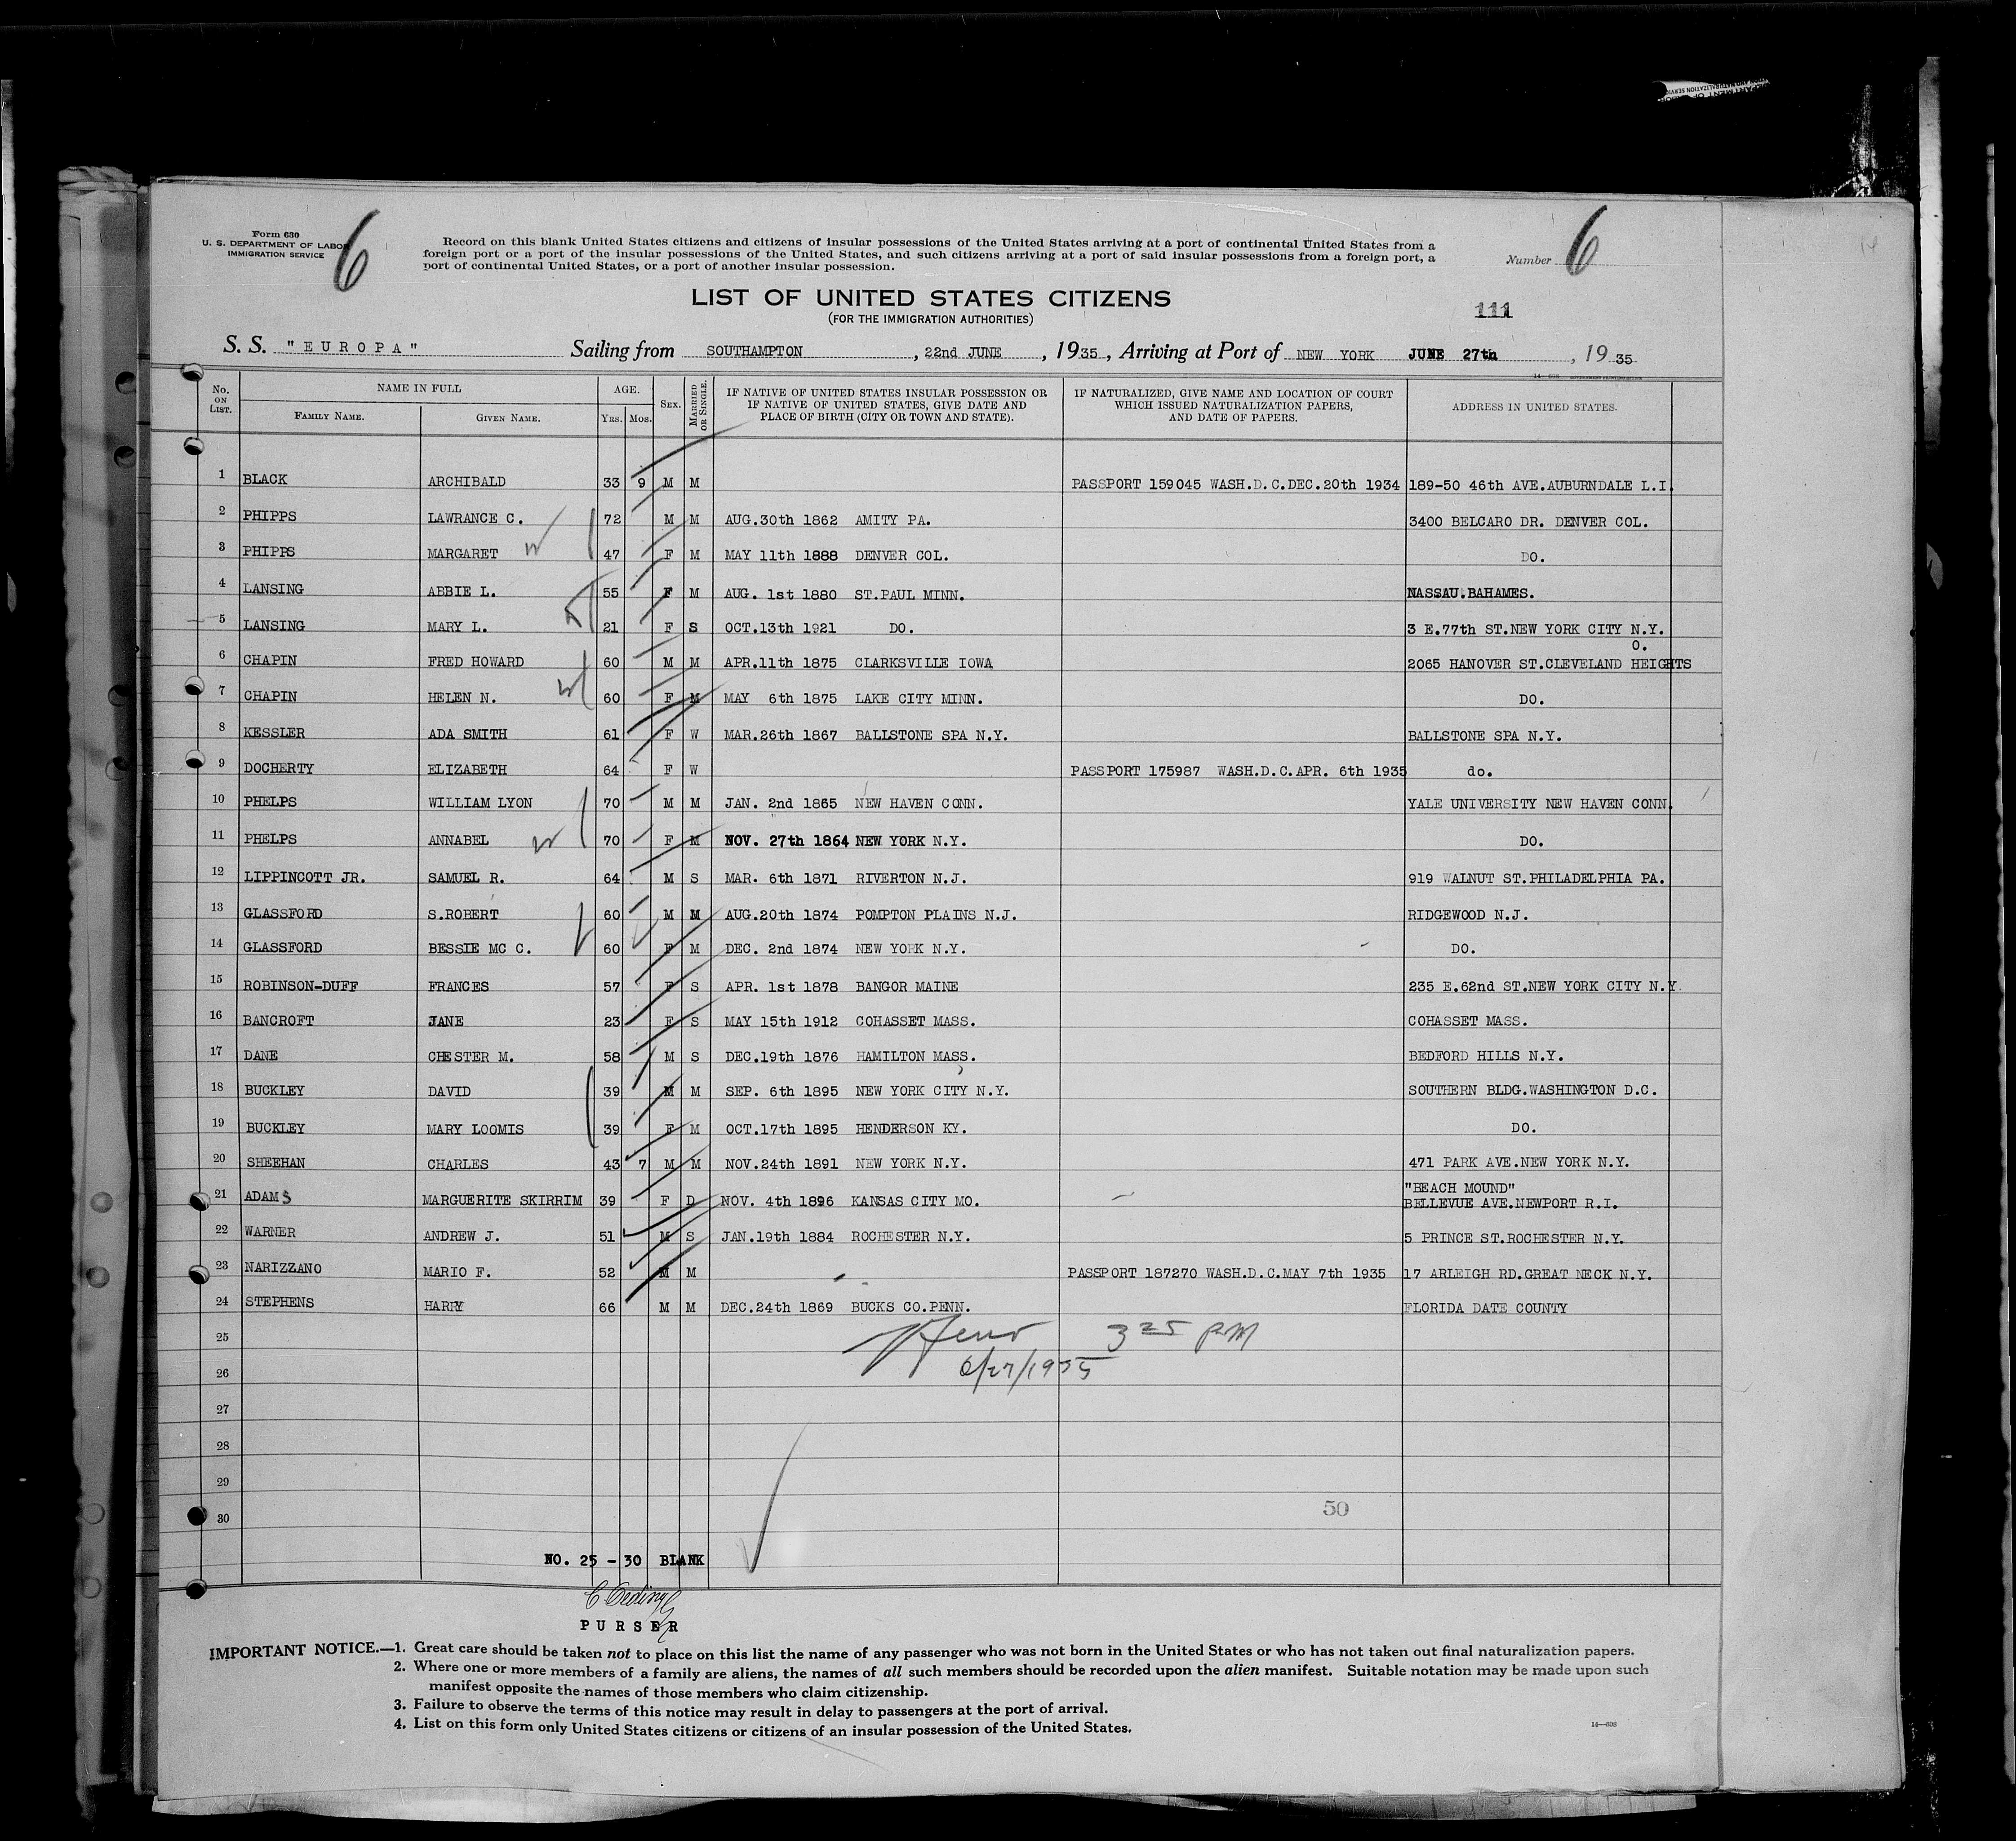 Form 630
U. S. DEPARTMENT OF LABOR
IMMIGRATION SERVICE
6
Record on this blank United States citizens and citizens of insular possessions of the United States arriving at a port of continental United States from a
foreign port or a port of the insular possessions of the United States, and such citizens arriving at a port of said insular possessions from a foreign port, a
port of continental United States, or a port of another insular possession.
Number 6
LIST OF UNITED STATES CITIZENS
(FOR THE IMMIGRATION AUTHORITIES)
111
S. S. "EUROPA" Sailing from SOUTHAMPTON, 22nd JUNE, 1935, Arriving at Port of NEW YORK JUNE 27th, 1935
No. ON LIST. NAME IN FULL FAMILY NAME. GIVEN NAME. AGE. YRS. MOS. SEX. MARRIED OR SINGLE. IF NATIVE OF UNITED STATES INSULAR POSSESSION OR IF NATIVE OF UNITED STATES, GIVE DATE AND PLACE OF BIRTH (CITY OR TOWN AND STATE). IF NATURALIZED, GIVE NAME AND LOCATION OF COURT WHICH ISSUED NATURALIZATION PAPERS, AND DATE OF PAPERS. ADDRESS IN UNITED STATES.
1 BLACK ARCHIBALD 33 9 M M PASSPORT 159045 WASH.D.C.DEC.20th 1934 189-50 46th AVE.AUBURNDALE L.I.
2 PHIPPS LAWRANCE C. 72 M M AUG.30th 1862 AMITY PA. 3400 BELCARO DR. DENVER COL.
3 PHIPPS MARGARET 47 F M MAY 11th 1888 DENVER COL. DO.
4 LANSING ABBIE L. 55 F M AUG. 1st 1880 ST.PAUL MINN. NASSAU.BAHAMES.
5 LANSING MARY L. 21 F S OCT.13th 1921 DO. 3 E.77th ST.NEW YORK CITY N.Y.
6 CHAPIN FRED HOWARD 60 M M APR.11th 1875 CLARKSVILLE IOWA 2065 HANOVER ST.CLEVELAND HEIGHTS O.
7 CHAPIN HELEN N. 60 F M MAY 6th 1875 LAKE CITY MINN. DO.
8 KESSLER ADA SMITH 61 F W MAR.26th 1867 BALLSTONE SPA N.Y. BALLSTONE SPA N.Y.
9 DOCHERTY ELIZABETH 64 F W PASSPORT 175987 WASH.D.C.APR. 6th 1935 do.
10 PHELPS WILLIAM LYON 70 M M JAN. 2nd 1865 NEW HAVEN CONN. YALE UNIVERSITY NEW HAVEN CONN.
11 PHELPS ANNABEL 70 F M NOV. 27th 1864 NEW YORK N.Y. DO.
12 LIPPINCOTT JR. SAMUEL R. 64 M S MAR. 6th 1871 RIVERTON N.J. 919 WALNUT ST.PHILADELPHIA PA.
13 GLASSFORD S.ROBERT 60 M M AUG.20th 1874 POMPTON PLAINS N.J. RIDGEWOOD N.J.
14 GLASSFORD BESSIE MC C. 60 F M DEC. 2nd 1874 NEW YORK N.Y. DO.
15 ROBINSON-DUFF FRANCES 57 F S APR. 1st 1878 BANGOR MAINE 235 E.62nd ST.NEW YORK CITY N.Y.
16 BANCROFT JANE 23 F S MAY 15th 1912 COHASSET MASS. COHASSET MASS.
17 DANE CHESTER M. 58 M S DEC.19th 1876 HAMILTON MASS. BEDFORD HILLS N.Y.
18 BUCKLEY DAVID 39 M M SEP. 6th 1895 NEW YORK CITY N.Y. SOUTHERN BLDG.WASHINGTON D.C.
19 BUCKLEY MARY LOOMIS 39 F M OCT.17th 1895 HENDERSON KY. DO.
20 SHEEHAN CHARLES 43 7 M M NOV.24th 1891 NEW YORK N.Y. 471 PARK AVE.NEW YORK N.Y.
21 ADAMS MARGUERITE SKIRRIM 39 F D NOV. 4th 1896 KANSAS CITY MO. "BEACH MOUND" BELLEVUE AVE.NEWPORT R.I.
22 WARNER ANDREW J. 51 M S JAN.19th 1884 ROCHESTER N.Y. 5 PRINCE ST.ROCHESTER N.Y.
23 NARIZZANO MARIO F. 52 M M PASSPORT 187270 WASH.D.C.MAY 7th 1935 17 ARLEIGH RD.GREAT NECK N.Y.
24 STEPHENS HARRY 66 M M DEC.24th 1869 BUCKS CO.PENN. FLORIDA DATE COUNTY
25 3 25 PM
26 6/27/1935
27
28
29
30 50
NO. 25 - 30 BLANK
PURSER
IMPORTANT NOTICE.—1. Great care should be taken not to place on this list the name of any passenger who was not born in the United States or who has not taken out final naturalization papers.
2. Where one or more members of a family are aliens, the names of all such members should be recorded upon the alien manifest. Suitable notation may be made upon such
manifest opposite the names of those members who claim citizenship.
3. Failure to observe the terms of this notice may result in delay to passengers at the port of arrival.
4. List on this form only United States citizens or citizens of an insular possession of the United States.
14—608